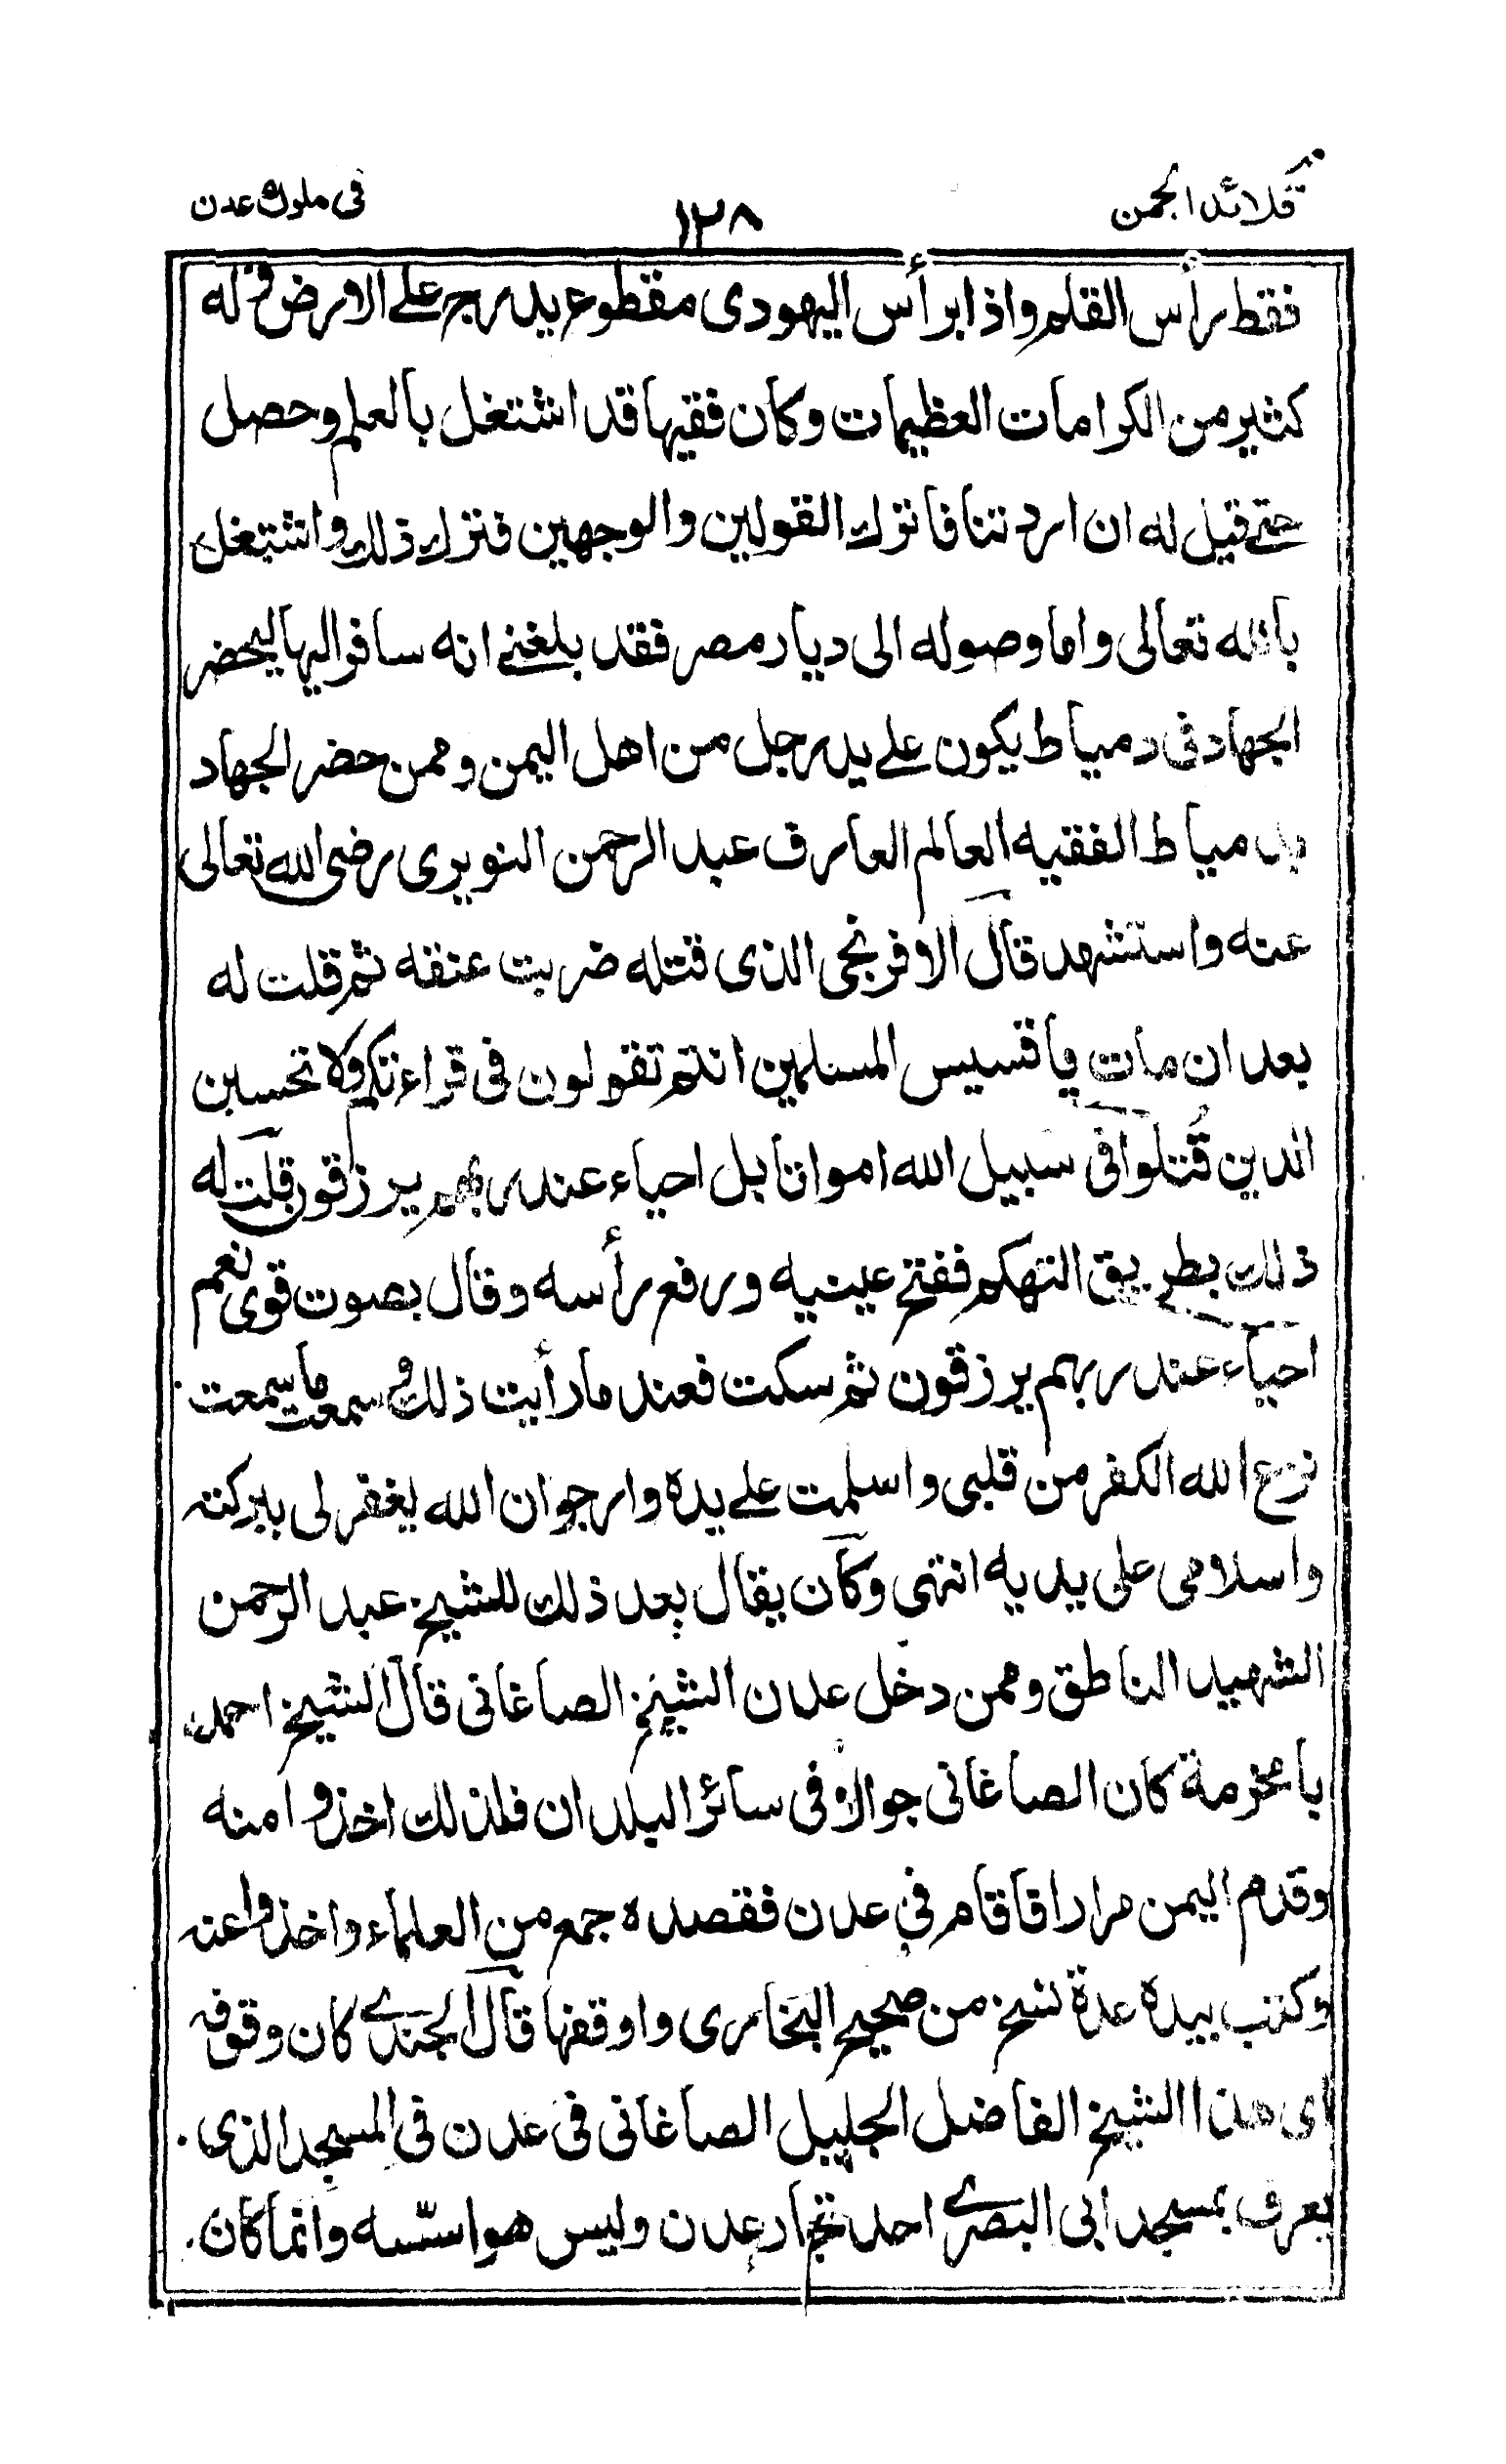 قلائد الجمن
١٢٨
فى ملوك عدن
فقط رأس القلم واذا برأس اليهودى مقطوع يدرج على الارض وله
كثير من الكرامات العظيمات وكان فقيها قد اشتغل بالعلم وحصل
حتى قيل له ان اردتنا فاترك القولين والوجهين فترك ذلك واشتغل
بالله تعالى واما وصوله الى ديار مصر فقد بلغنى انه سافر اليها ليحضر
الجهاد فى دمياط يكون على يد رجل من اهل اليمن وممن حضر الجهاد
بدمياط الفقيه العالم العارف عبد الرحمن النويرى رضى الله تعالى
عنه واستشهد قال الافرنجى الذى قتله ضربت عنقه ثم قلت له
بعد ان مات يا قسيس المسلمين انتم تقولون فى قراءتكم ولا تحسبن
الذين قُتلوا فى سبيل الله امواتا بل احياء عند ربهم يرزقون قلت له
ذلك بطريق التهكم ففتح عينيه ورفع رأسه وقال بصوت قوى نعم
احياء عند ربهم يرزقون ثم سكت فعند ما رأيت ذلك وسمعت ما سمعت
نزع الله الكفر من قلبى واسلمت على يده وارجوان الله يغفر لى ببركته
واسلامى على يديه انتهى وكان يقال بعد ذلك للشيخ عبد الرحمن
الشهيد الناطق وممن دخل عدن الشيخ الصاغانى قال الشيخ احمد
بامخرمة كان الصاغانى جوالا فى سائر البلدان فلذلك اخذوا منه
وقدم اليمن مرارا فاقام في عدن فقصده جمع من العلماء واخذوا عنه
وكتب بيده عدة نسخ من صحيح البخارى واوقفها قال الجندى كان وقوفه
اى هذا الشيخ الفاضل الجليل الصاغانى فى عدن فى المسجد الذى
يعرف بمسجد ابى البصرى احد تجار عدن وليس هو اسّسه وانما كان